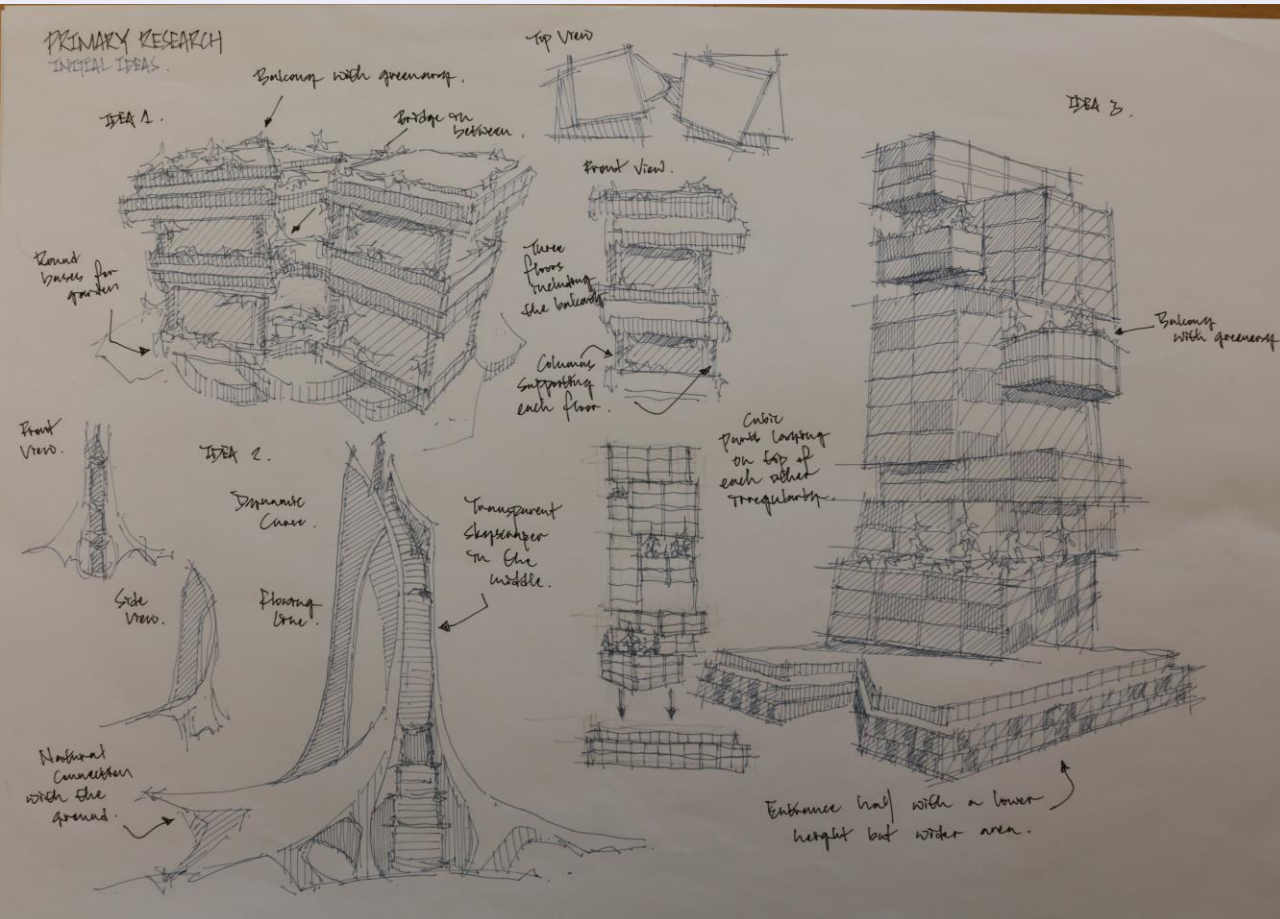 PRIMARY RESEARCH
INITIAL IDEAS.
IDEA 1.
Balcony with greenery.
Bridge in
between.
Round
bases for
garden
Top View
Front View.
Three
floors
including
the balcony
Columns
supporting
each floor.
IDEA 3.
Balcony
with greenery
Cubic
parts
on top of
each other
irregularity.
Entrance hall with a lower
height but wider area.
Front
View.
IDEA 2.
Dynamic
Curve.
Transparent
skyscraper
in the
middle.
Side
View.
Flowing
line.
Natural
Connection
with the
ground.